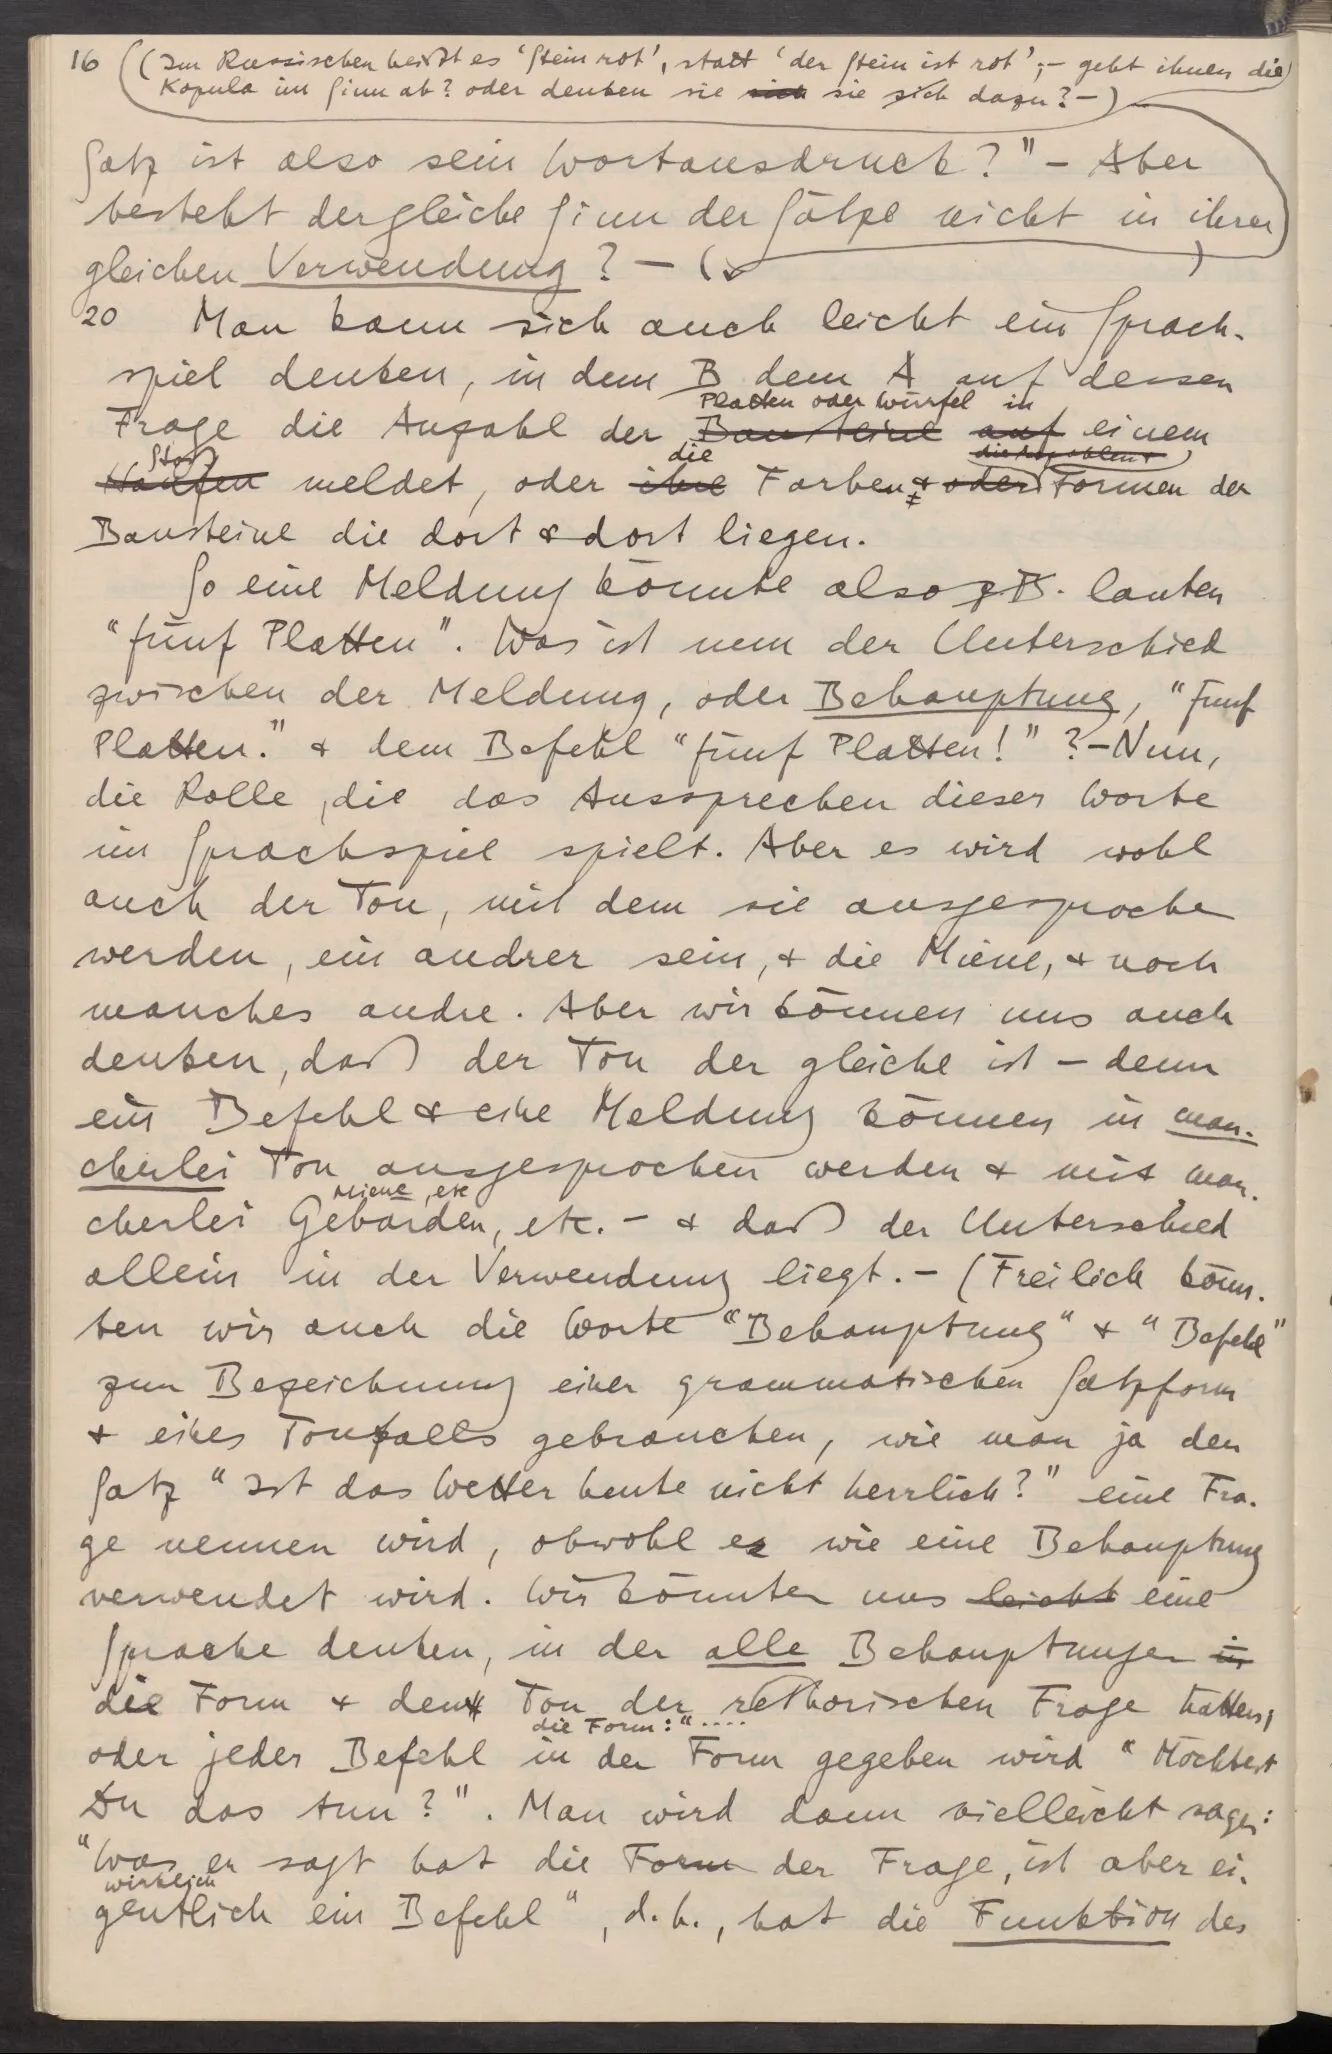 16 ((Im Russischen heißt es 'Stein rot', statt 'der Stein ist rot'; – geht ihnen die
Kopula im Sinn ab? oder denken sie sich sie sich dazu? –)
Satz ist also sein Wortausdruck?" – Aber
besteht der gleiche Sinn der Sätze nicht in ihrer
gleichen Verwendung? – ( )
20 Man kann sich auch leicht ein Sprach-
spiel denken, in dem B dem A auf dessen
Platten oder Würfel in
Frage die Anzahl der Bausteine auf einem
Stoß die die Angaben &
Haufen meldet, oder ihre Farben & oder Formen der
Bausteine die dort & dort liegen.
So eine Meldung könnte also z.B. lauten
"fünf Platten". Was ist nun der Unterschied
zwischen der Meldung, oder Behauptung, "fünf
Platten." & dem Befehl "fünf Platten!" ? – Nun,
die Rolle, die das Aussprechen dieser Worte
im Sprachspiel spielt. Aber es wird wohl
auch der Ton, mit dem sie ausgesproche
werden, ein andrer sein, & die Miene, & noch
manches andre. Aber wir können uns auch
denken, daß der Ton der gleiche ist – denn
ein Befehl & eine Meldung können in man-
cherlei Ton ausgesprochen werden & mit man-
Miene, etc
cherlei Gebärden, etc. – & daß der Unterschied
allein in der Verwendung liegt. – (Freilich könn-
ten wir auch die Worte "Behauptung" & "Befehl"
zur Bezeichnung einer grammatischen Satzform
& eines Tonfalls gebrauchen, wie man ja den
Satz "Ist das Wetter heute nicht herrlich?" eine Fra-
ge nennen wird, obwohl er wie eine Behauptung
verwendet wird. Wir könnten uns leicht eine
Sprache denken, in der alle Behauptungen in
die Form & den Ton der rethorischen Frage hätten;
die Form: "....
oder jeder Befehl in der Form gegeben wird "Möchtest
Du das tun?". Man wird dann vielleicht sagen:
"Was er sagt hat die Form der Frage, ist aber ei-
wirklich
gentlich ein Befehl", d.h., hat die Funktion des